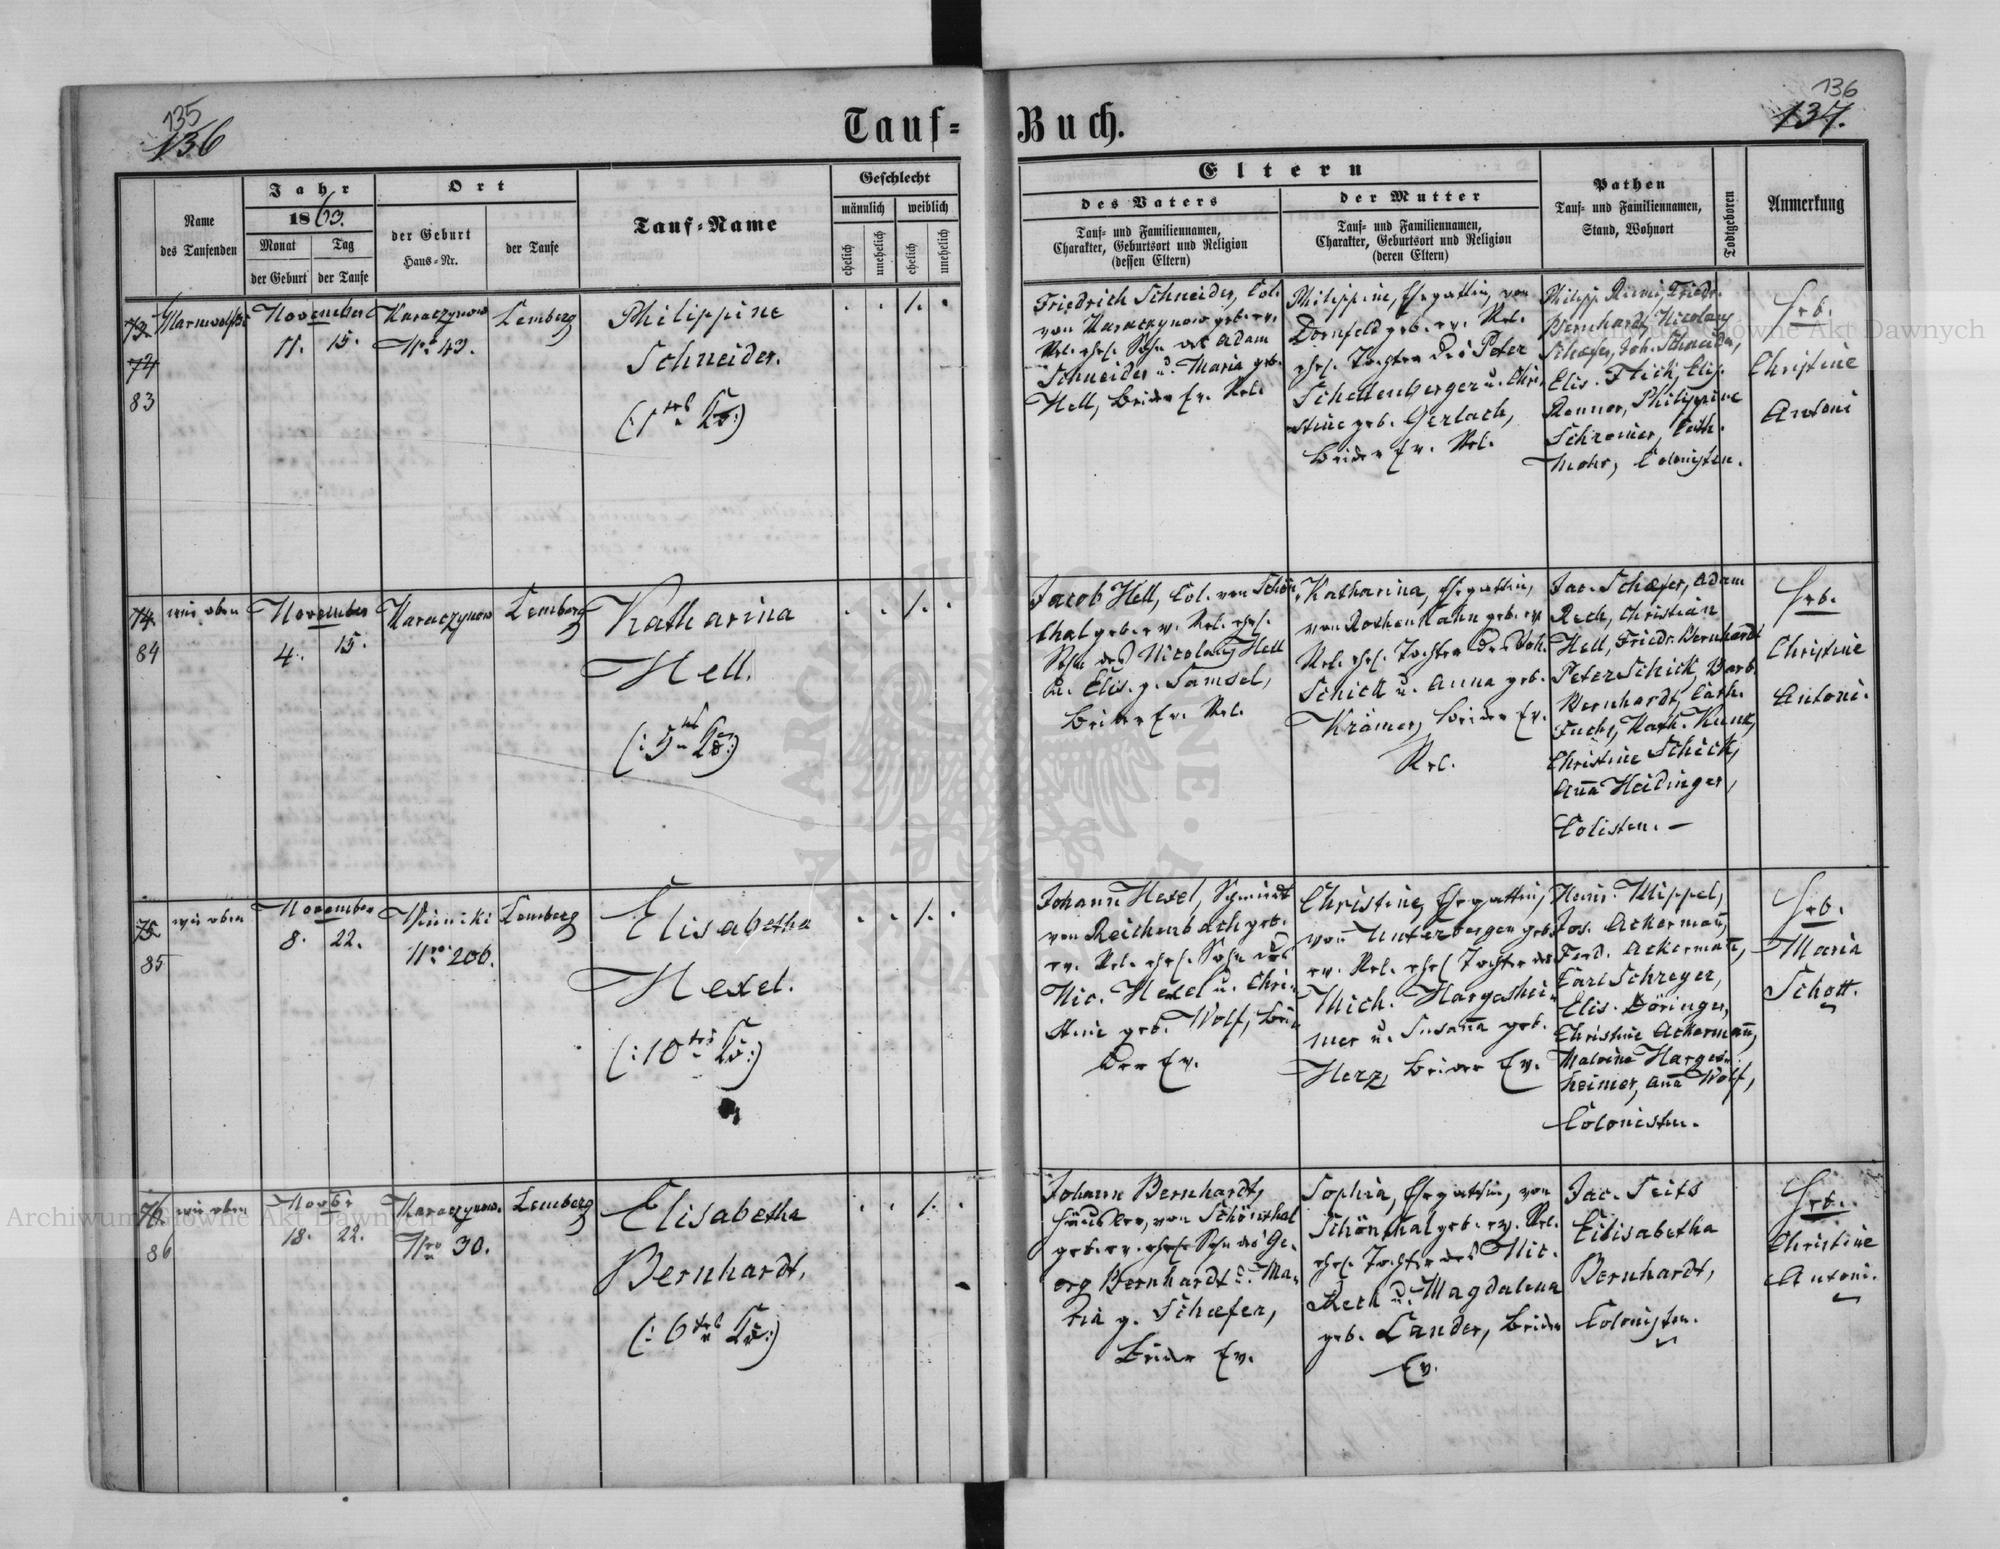 135
136
Tauf=
Buch.
136
137.
Name
des Taufenden
Jahr
1863.
Monat
Tag
der Geburt
der Taufe
Ort
der Geburt
Haus=Nr.
der Taufe
Tauf=Name
Geschlecht
männlich
weiblich
ehelich
unehelich
ehelich
unehelich
Eltern
des Vaters
Tauf= und Familiennamen,
Charakter, Geburtsort und Religion
(dessen Eltern)
der Mutter
Tauf= und Familiennamen,
Charakter, Geburtsort und Religion
(deren Eltern)
Pathen
Tauf= und Familiennamen,
Stand, Wohnort
Todtgeboren
Anmerkung
73.
74
83
November
11. 15.
Karaczynow
Nro 43.
Lemberg
Philippine
Schneider.
Friedrich Schneider, Col.
von Karaczynow geb. ev.
Rel. ehel. Sohn des Adam
Schneider u. Maria geb.
Hell, beider Ev. Rel.
Philippine, Ehegattin, von
Dornfeld geb. ev. Rel.
ehel. Tochter des Peter
Schellenberger u. Chri-
stine geb. Gerlach,
beider Ev. Rel.
Philipp Friedr.
Bernhardt, Nicolaus
Schaefer, Joh. Schneider,
Elis. Flick, Elis.
Philippine
Cath.
Mohr, Colonisten.
Heb.
Christine
Antoni
74.
84
wie oben
November
4. 15.
Karaczynow
Lemberg
Katharina
Hell.
Jacob Hell, Col. von Schön-
thal geb. ev. Rel. ehel.
Sohn des Nicolaus Hell
u. Elis. g. Samsel,
beider Ev. Rel.
Katharina, Ehegattin,
von Rothenhahn geb. ev.
Rel. ehel. Tochter des Joh.
Schick u. Anna geb.
Krämer, beider Ev.
Rel.
Jac. Schaefer, Adam
Rech, Christian
Hell, Friedr. Bernhardt
Peter Schick, Barb.
Bernhardt, Cath.
Fuchs, Kath. Kunz,
Christine Schick,
Anna Heidinger,
Colisten. —
Heb.
Christine
Antoni.
75.
85
wie oben
November
8. 22.
Winniki
Nro 206.
Lemberg
Elisabetha
Hexel.
Johann Hexel, Schmidt
von Reichenbach geb.
ev. Rel. ehel. Sohn des
Nic. Hexel u. Chri-
stine geb. Wolf, bei-
der Ev.
Christine, Ehegattin,
von Unterbergen geb.
ev. Rel. ehel. Tochter des
Mich. Hargeshei-
mer u. Susanna geb.
Herz, beider Ev.
Heinr. Wippel,
Jos. Ackermann,
Ferd. Ackermann,
Carl Schreyer,
Elis. Döringer,
Christine Ackermann,
Malvine Harges-
heimer, Anna Wolf,
Colonisten.
Heb.
Maria
Schott.
76.
86
wie oben
Novbr
18. 22.
Karaczynow.
Nro 30.
Lemberg
Elisabetha
Bernhardt.
Johann Bernhardt,
Häusler, von Schönthal
geb. ev. ehel. Sohn des Ge-
org Bernhardt u. Ma-
ria g. Schaefer,
beider Ev.
Sophia, Ehegattin, von
Schönthal geb. ev. Rel.
ehel. Tochter des Nic.
Rech u. Magdalena
geb. Lander, beider
Ev.
Jac. Seits
Elisabetha
Bernhardt,
Colonisten.
Heb.
Christine
Antoni.
Archiwum Główne Akt Dawnych
Archiwum Główne Akt Dawnych